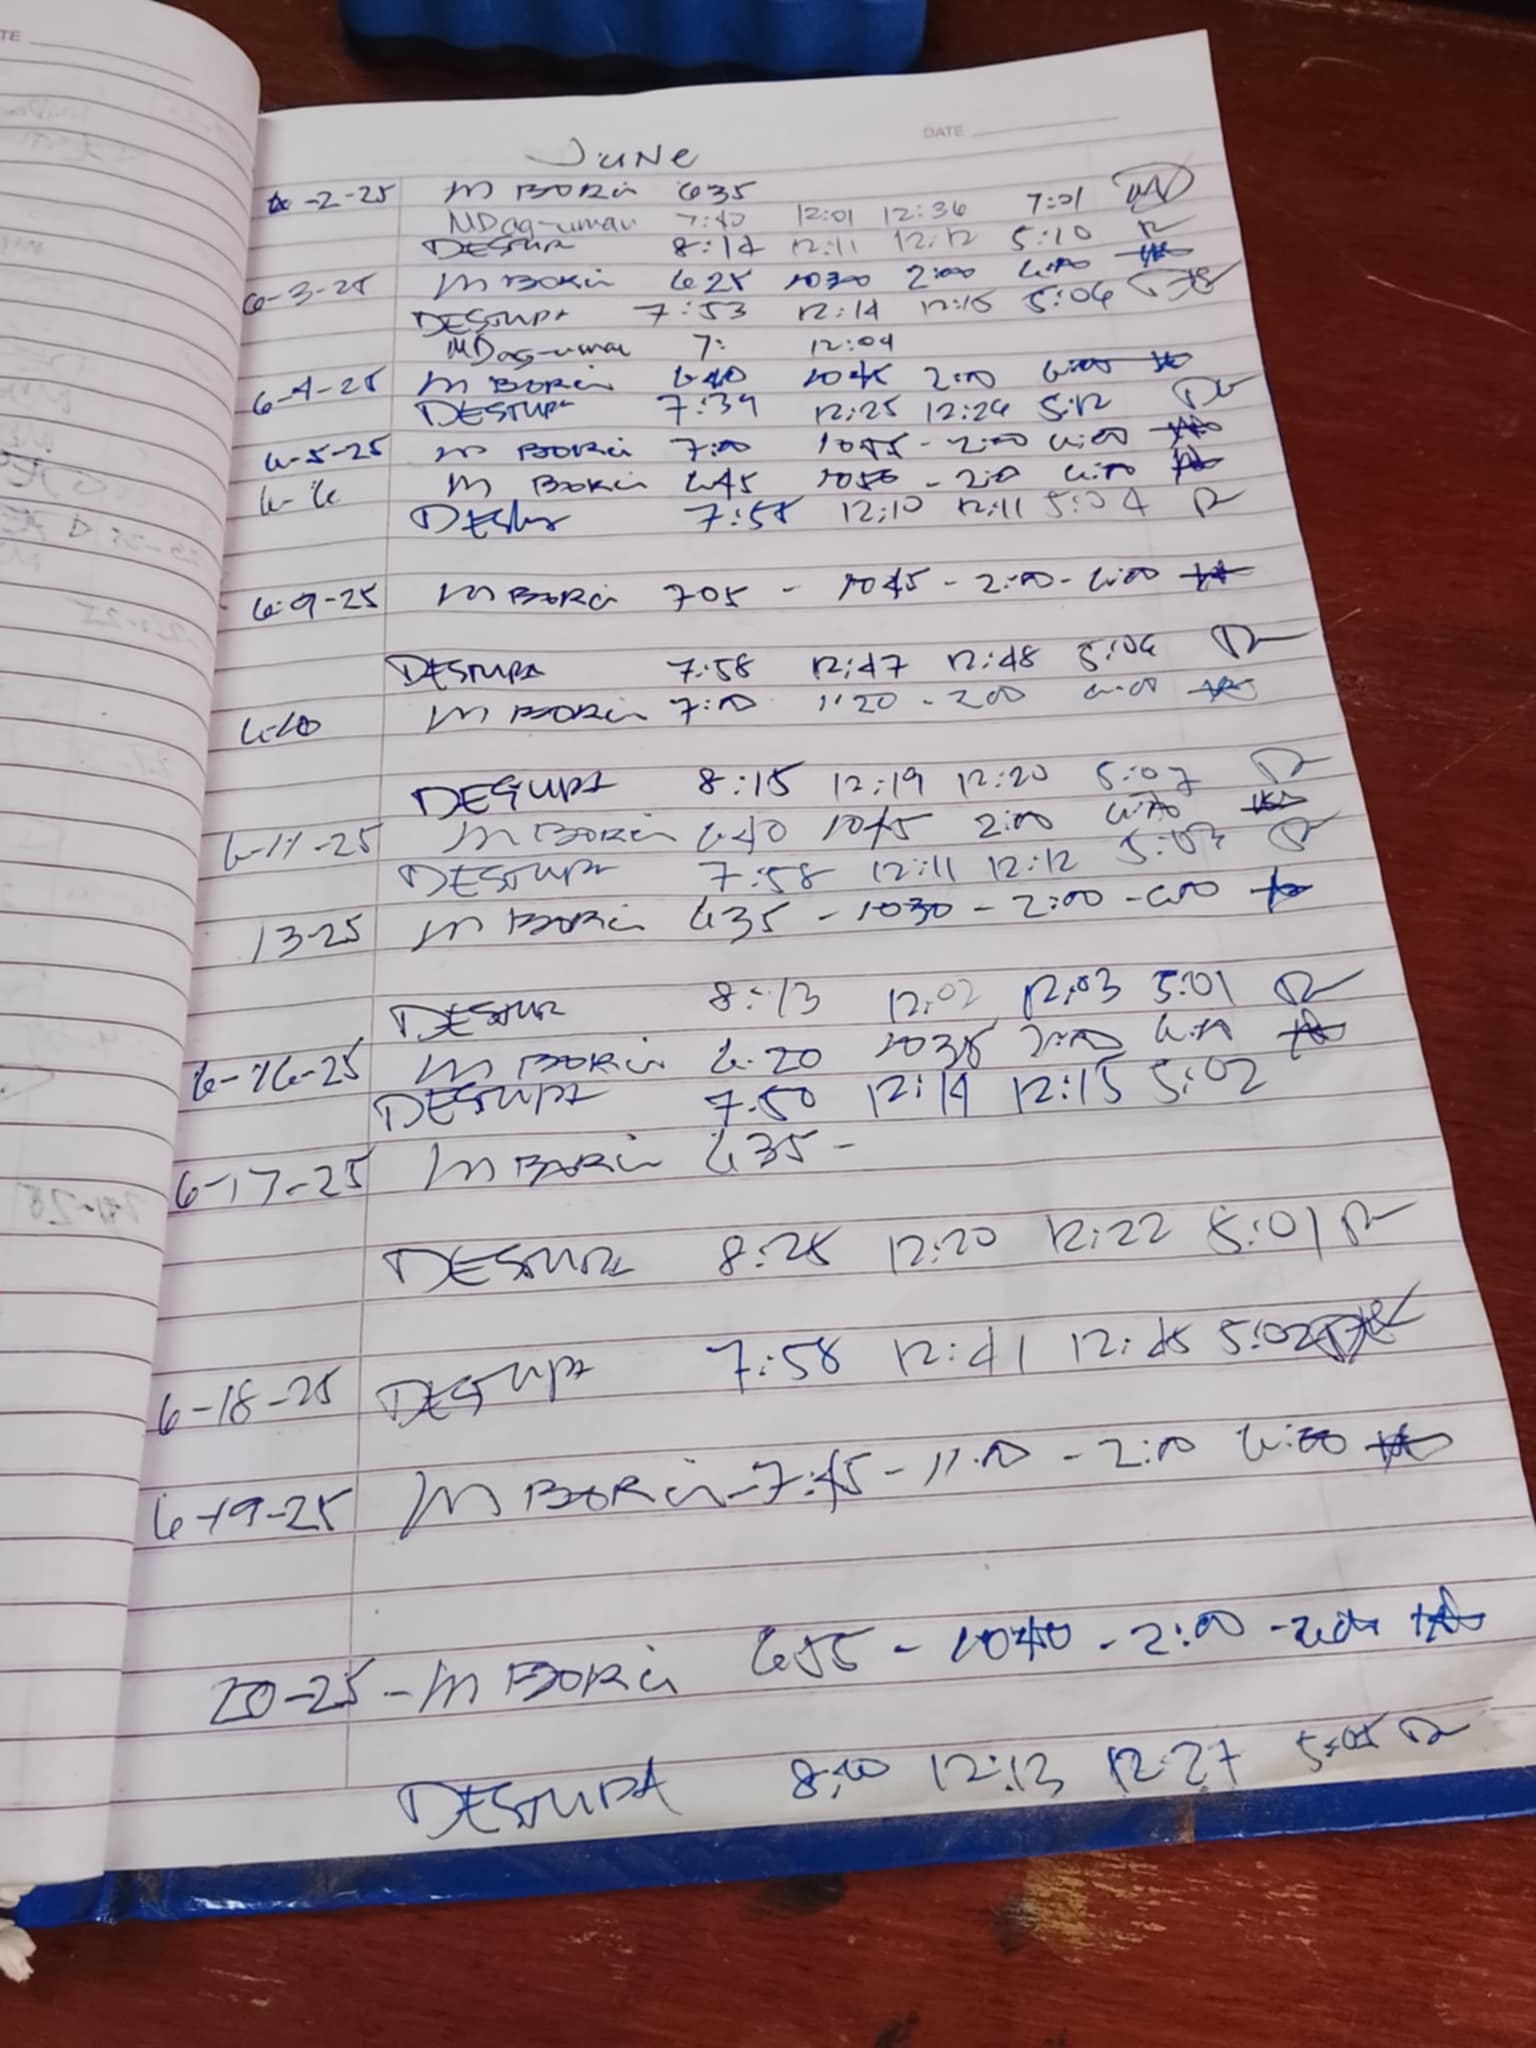 DATE
June
6-2-25 M BORCi 635
MDag-uman 7:40 12:01 12:36 7:01
DESTUR 8:14 12:11 12:12 5:10
6-3-25 M BORCi 625 1030 2:00 6:00
DESTUPA 7:53 12:14 12:15 5:06
MDag-uman 7: 12:04
6-4-25 M BORCi 640 1045 2:00 6:00
DESTUPA 7:39 12:25 12:26 5:12
6-5-25 M BORCi 7:00 1055 - 2:00 6:00
6-6 M BORCi 645 1050 - 2:00 6:00
7:58 12:10 12:11 5:04
6-9-25 M BORCi 705 - 1045 - 2:00 - 6:00
DESTUPA 7:58 12:47 12:48 5:06
6-10 M BORCi 7:00 1120 - 200 6:00
DESTUPA 8:15 12:19 12:20 5:07
6-11-25 M BORCi 640 1045 2:00 6:00
DESTUPA 7:58 12:11 12:12 5:03
13-25 M BORCi 635 - 1030 - 2:00 - 6:00
DESTUR 8:13 12:02 12:03 5:01
6-16-25 M BORCi 6:20 1035 2:00 6:00
DESTUPA 7:50 12:14 12:15 5:02
6-17-25 M BORCi 635 -
DESTUPA 8:25 12:20 12:22 5:01
6-18-25 DESTUPA 7:58 12:41 12:45 5:02
6-19-25 M BORCi - 7:45 - 11:00 - 2:00 6:00
20-25 - M BORCi 655 - 1040 - 2:00 -
DESTUPA 8:10 12:13 12:27 5:05